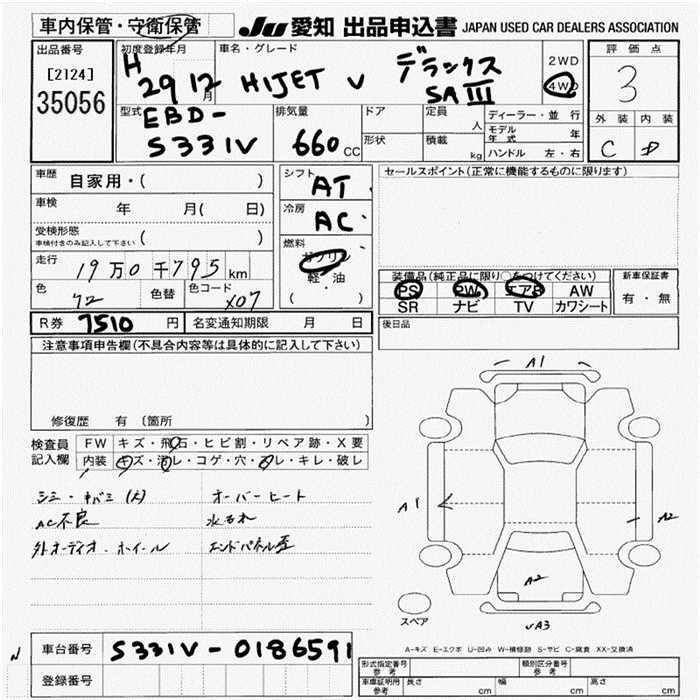 車内保管・守衛保管
JU 愛知 出品申込書 JAPAN USED CAR DEALERS ASSOCIATION
出品番号
[2124]
35056
初度登録年月
H 29 12 月
車名・グレード
HIJET V デラックス
SA III
2WD
4WD
評価点
3
外装 内装
C D
型式
EBD-
S331V
排気量
660 CC
ドア
形状
定員 人
積載 kg
ディーラー・並行
モデル年式 年
ハンドル 左・右
車歴 自家用・( )
車検 年 月( 日)
受検形態
車検付きのみ記入して下さい ( )
走行 19万0千795 km
色 72 色替 色コード X07
シフト AT
冷房 AC
燃料
ガソリン
軽・油
( )
セールスポイント(正常に機能するものに限ります)
装備品(純正品に限り○をつけてください)
PS PW エアB AW
SR ナビ TV カワシート
新車保証書
有・無
後日品
R券 7510 円 名変通知期限 月 日
注意事項申告欄(不具合内容等は具体的に記入して下さい)
修復歴 有 〔箇所 〕
検査員
記入欄
FW キズ・飛石・ヒビ割・リペア跡・X要
内装 キズ・汚レ・コゲ・穴・スレ・キレ・破レ
シミ・キバミ(大) オーバーヒート
AC不良 水もれ
外オーディオ・ホイール エンドパネル歪
A1
A1
A2
A2
A3
スペア
A-キズ E-エクボ U-凹み W-補修跡 S-サビ C-腐食 XX-交換済
車台番号 S331V-0186591
登録番号
形式指定番号
参考
類別区分番号
参考
車庫証明用
参考
長さ cm 幅 cm 高さ cm